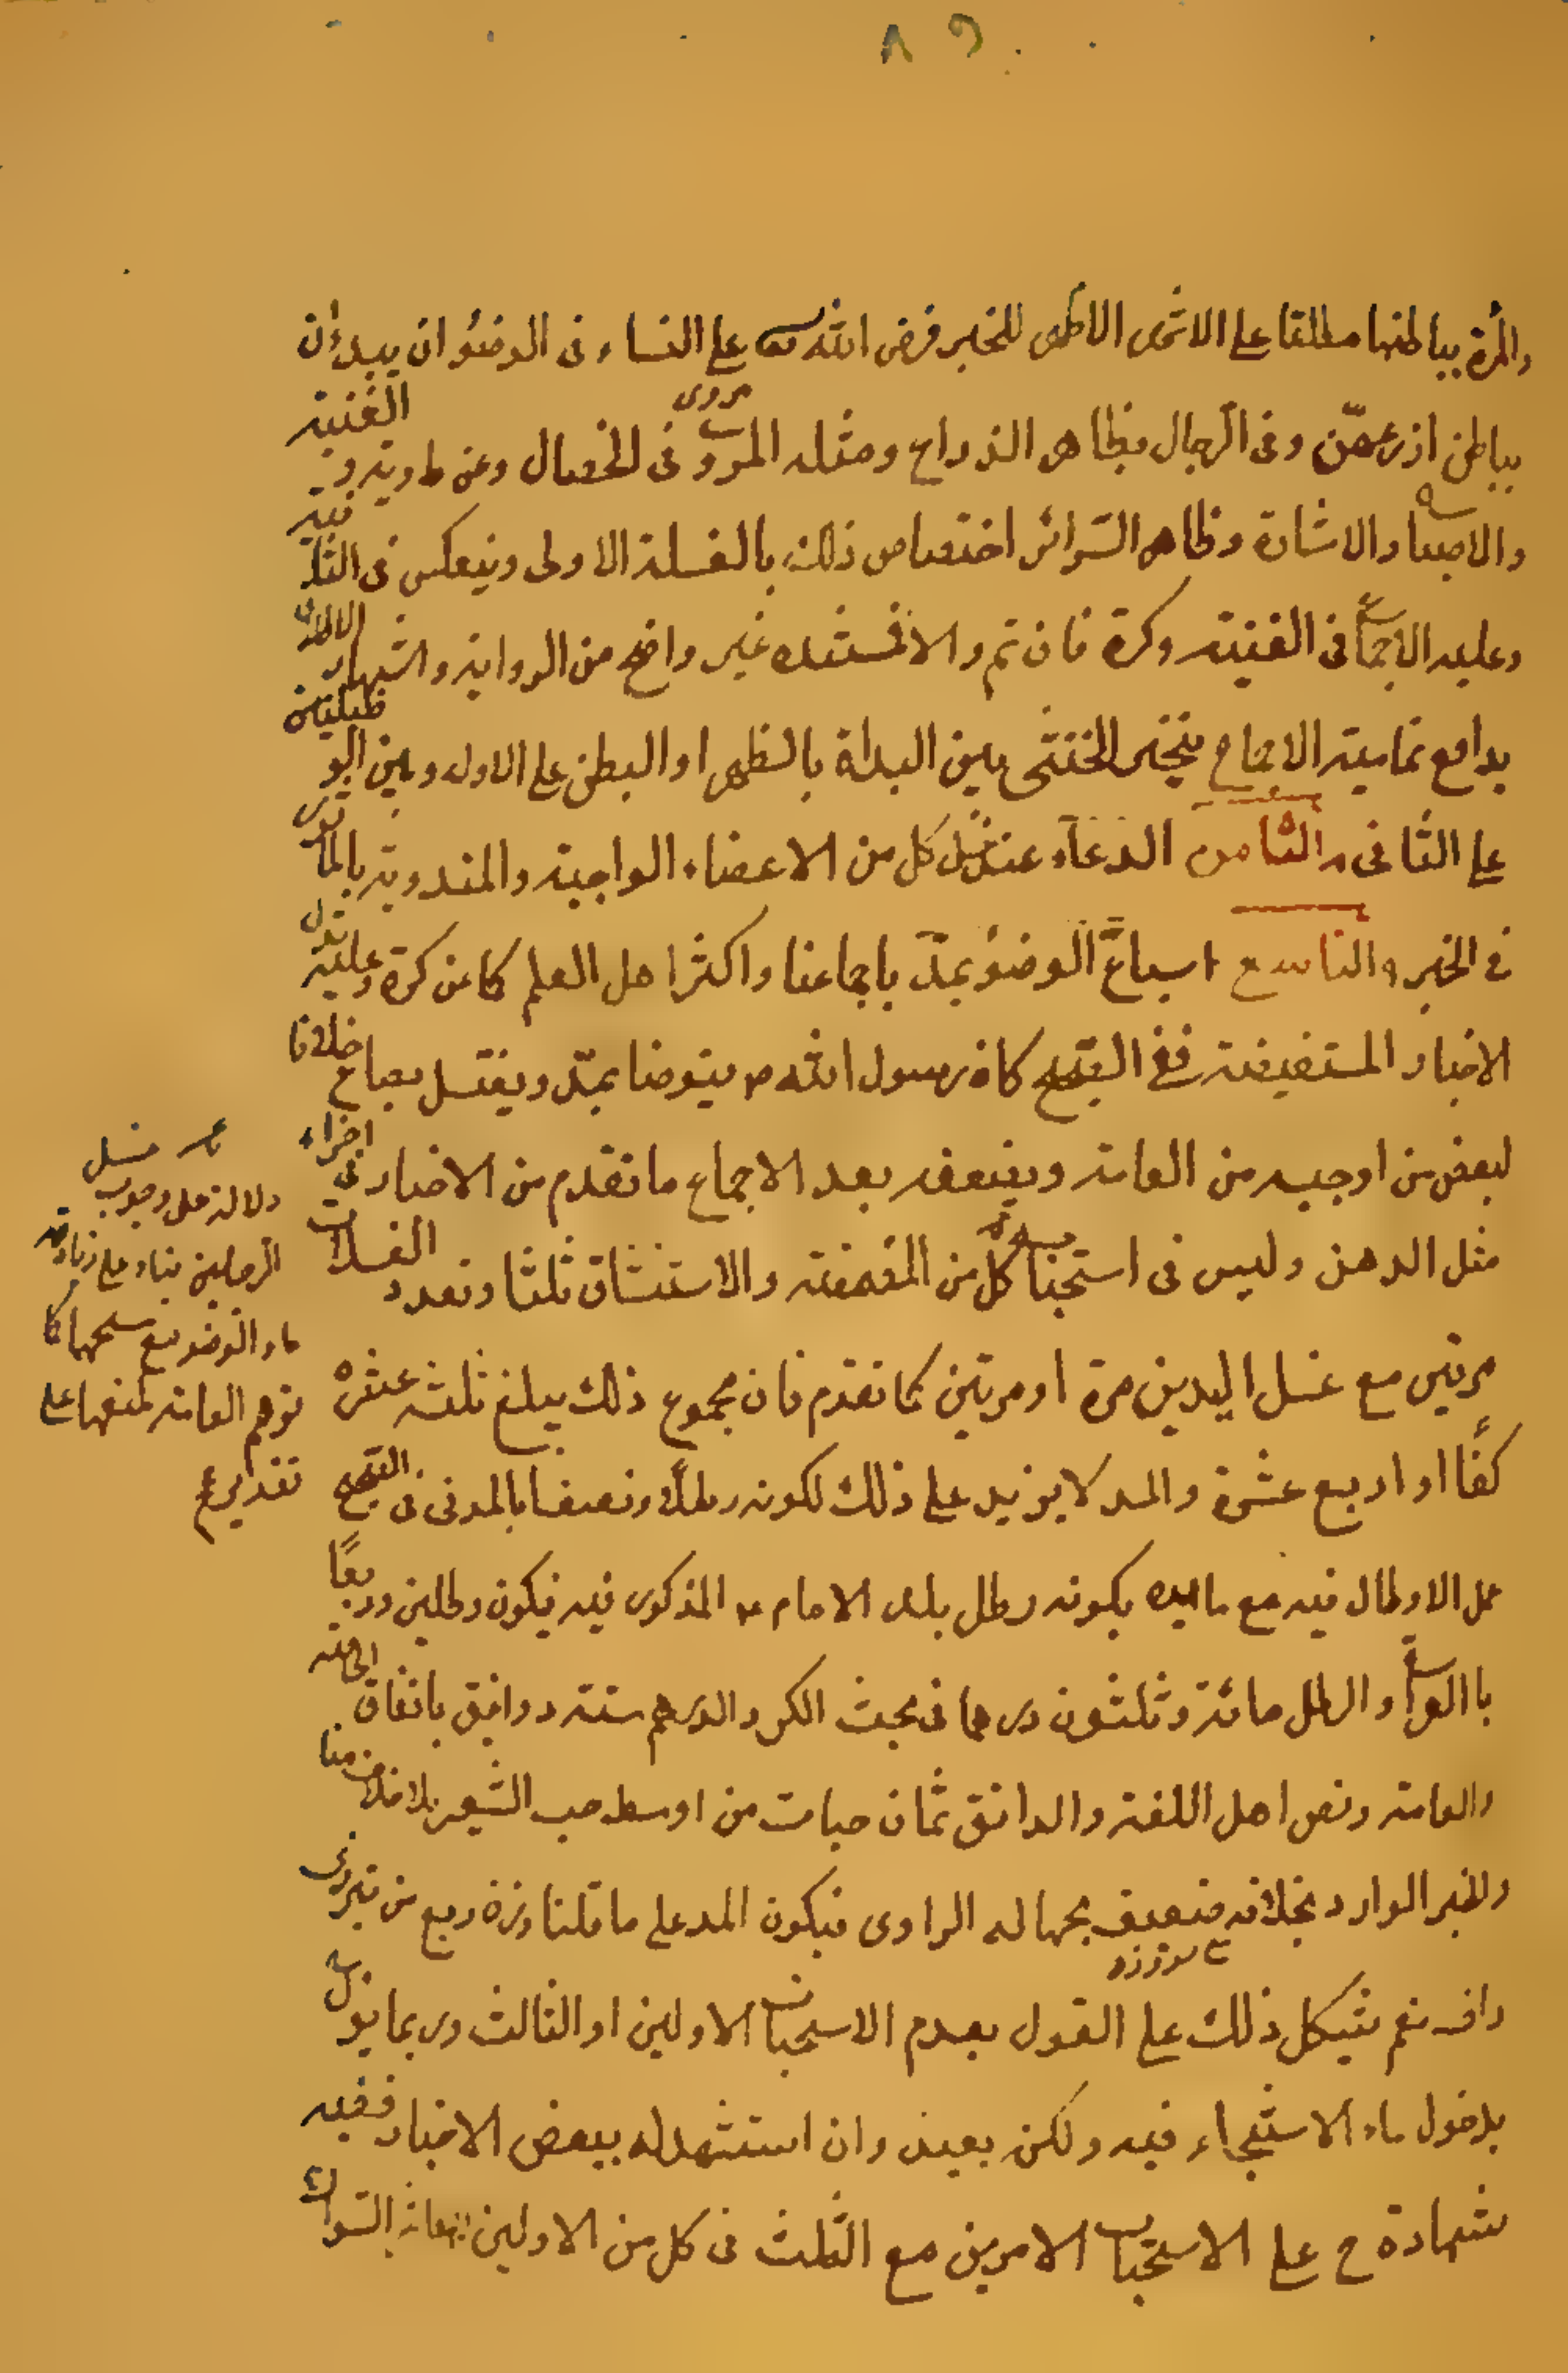 ٨٩
والمرأة بباطنها مطلقا على الاشهر الاظهر للخبر فرض الله تعالى على النساء فى الوضوء ان يبدأن
بباطن اذرعهنّ وفى الرجال بظاهر الذراع ومثله المروى فى الخصال وعن ط وية و الغنية
والاصباح والاشارة وظاهر السرائر اختصاص ذلك بالغسلة الاولى وينعكس فى الثانية
وعليه الاجماع فى الغنية وكرة فان تم والا فمستنده غير واضح من الرواية والشهرة
مع تمامية الاجماع يتخير الخنثى بين البدأة بالظهر او البطن على الاول وبين الوظيفتين
على الثانى والثامن الدعاء عند غسل كل من الاعضاء الواجبة والمندوبة بالمأثور
فى الخبر والتاسع اسباغ الوضوء بمدّ باجماعنا واكثر اهل العلم كما عن كرة وعليه تدل
الاخبار المستفيضة ففى الصحيح كان رسول الله ص يتوضا بمدّ ويغتسل بصاع خلافا
لبعض من اوجبه من العامة ويضعفه بعد الاجماع ما تقدم من الاخبار فى اجزاء
مثل الدهن وليس فى استحباب كل من المضمضة والاستنشاق ثلثا وتعدد الغسلات
مرتين مع غسل اليدين مرة او مرتين كما تقدم فان مجموع ذلك يبلغ ثلث عشرة
كفّا او اربع عشرة والمد لا يزيد على ذلك لكونه رطلاً ونصفا بالمدنى فى الصحيح
حمل الارطال فيه مع ما ايده بكونه رطل بلد الامام ع المذكور فيه فيكون رطلين وربعًا
بالعراقى والرطل مائة وثلثون درهما فى مبحث الكر والدرهم ستة دوانيق باتفاق الخاصة
والعامة ونص اهل اللغة والدانق ثمان حبات من اوسط حب الشعير بلا خلاف منا
والخبر الوارد بخلافه ضعيف بجهالة الراوى فيكون المد على ما قلنا وزنه ربع من تبريزى
واف نعم يشكل ذلك على القول بعدم الاستحباب الاولين او الثالث وربما يؤل
بدخول ماء الاستنجاء فيه ولكنه بعيد وان استشهد له ببعض الاخبار ففيه
شهادة ح على الاستحباب الامرين مع الثلث فى كل من الاولين السواك
غسل
دلالة على وجوب
الرجلين بناء على زيادة
ماء الوضوء مع مسحهما كما
توهم العامة لمنعها على
تقدير